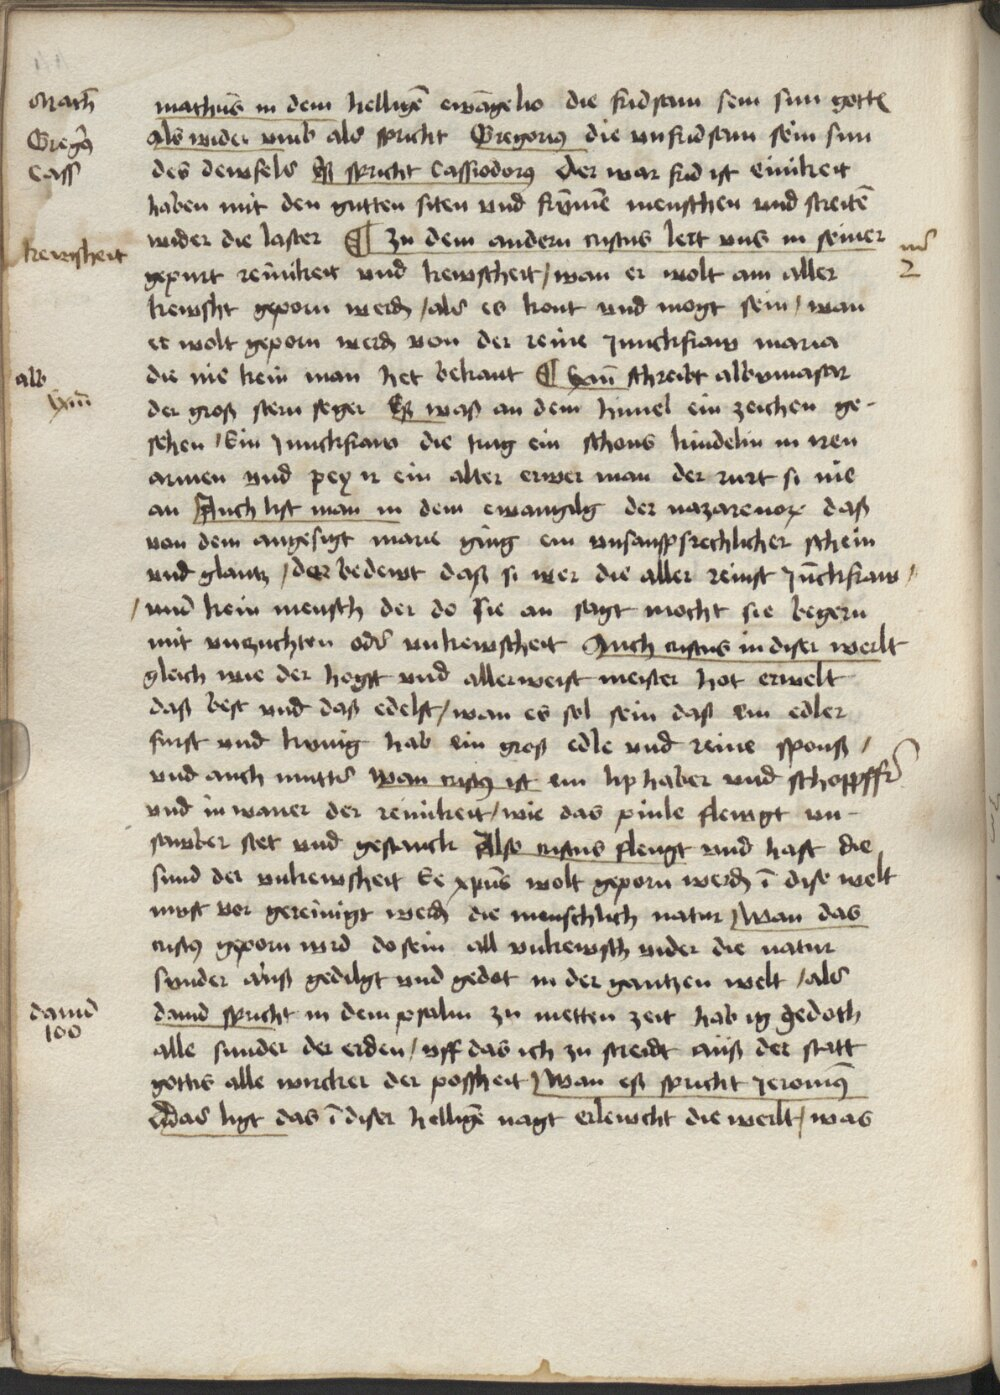 Math̄
mathūs in dem helligē ewāgelio die fridsam sein sun gottꝭ
Greg9
als wider umb als spricht Gregorius die unfridsam sein sun
Cass
des dewfels Eß spricht Cassiodorꝰ Der war frid ist einikeit
haben mit den gutten siten und frumē menschen und streitē
kewsheit
wider die laster ¶ Zu dem andern cristus lert uns in seiner
2
gepurt reinikeit und kewscheit / wan er wolt am aller
kewsht geporn werdn / als es kont und mogt sein / wan
er wolt geporn werdn von der reine Junckfraw maria
alb
die nie kein man het bekant ¶ schreibt albumasar
der groß stern seger Eß waß an dem himel ein zeichen ge-
sehen / Ein Junckfraw die trug ein schons kindelin in iren
armen und pey ir ein alter erwer man der rurt si nie
an Auch list man in dem ewangilg der nazarenorꝝ daß
von dem angesigt marie ging ein unsaußsprechlicher schein
und glantz / der bedewt daß si wer die aller reinst Jūckfraw /
/ und kein mensch der do sie an sagt mocht sie begern
mit unzuchten oder unkewscheit Auch cristus in diser werlt
gleich wie der hogst und allerweist meister hot erwelt
daß best und daß edelst / wan es sol sein daß ein edler
furst und kunig hab ein groß edle und reine sponß /
und auch mutter wan cristꝰ ist ein liphaber und schopffer
und inwaner der reinikeit / wie das pinle flewgt un-
sawber stet und gestanck Also cristus fleugt und hast die
sund der unkewsheit Ee xpūs wolt geporn werdn ī dise welt
must vor gereinigt werdn die menschlich natur / wan das
cristꝰ geporn wird do sein all unkewsch wider die natur
sunder auß gedilgt und gedot in der gantzen welt / als
dauid
100
dauid spricht in dem psalm zu metten zeit hab ig gedoth
alle sunder der erden / uff das ich zu streidt auß der statt
gottis alle wircker der possheit / wan eß spricht Jeronimꝰ
Das ligt das ī diser helligē nagt erlewcht die werlt / was